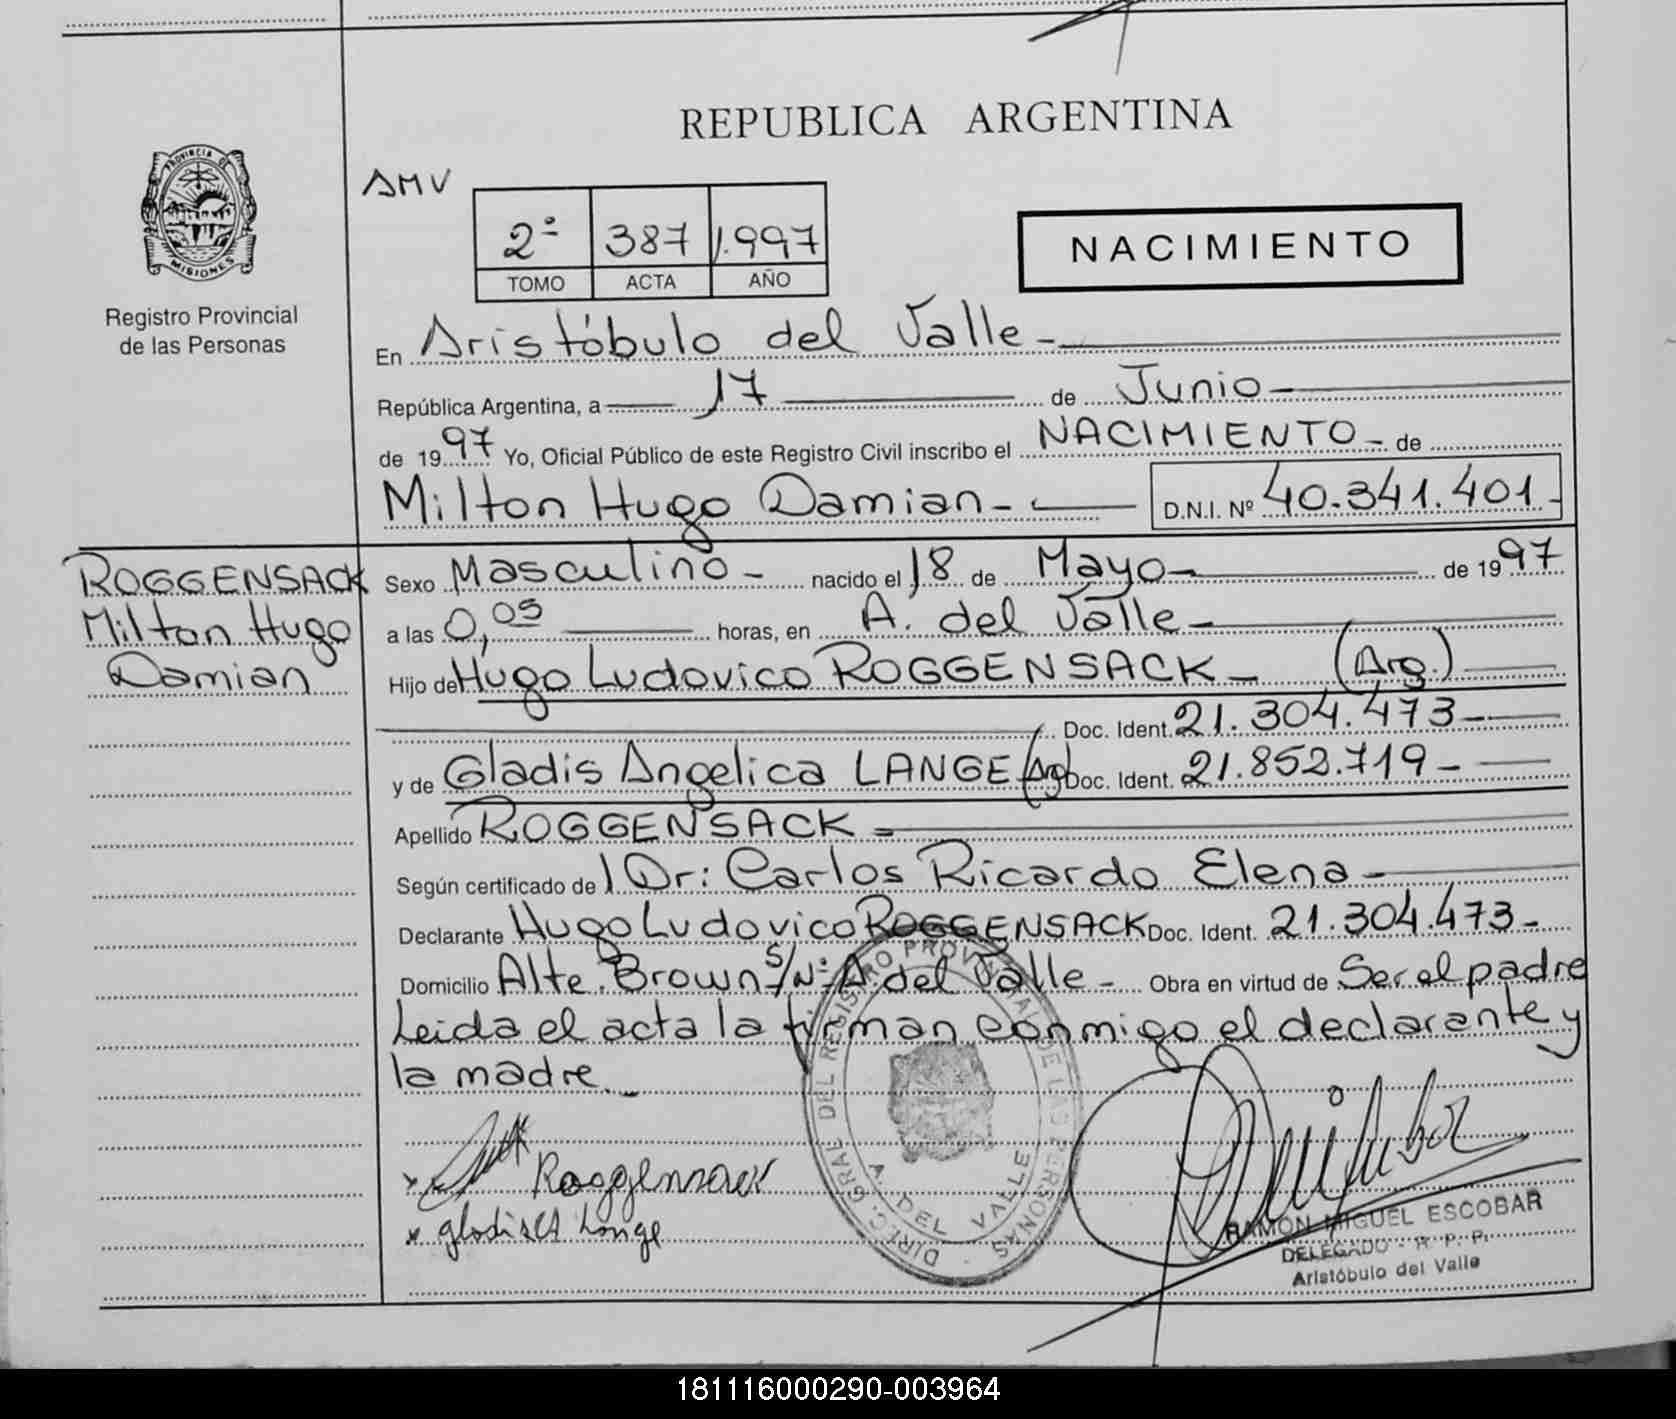 REPUBLICA ARGENTINA
PROVINCIA DE
MISIONES
Registro Provincial
de las Personas
AMV
2º 387 1.997
TOMO ACTA AÑO
NACIMIENTO
En Aristóbulo del Valle-
República Argentina, a 17 de Junio-
de 1997 Yo, Oficial Público de este Registro Civil inscribo el NACIMIENTO- de
Milton Hugo Damian- D.N.I. Nº 40.341.401-
ROGGENSACK
Milton Hugo
Damian
Sexo Masculino- nacido el 18 de Mayo- de 1997
a las 0,05 horas, en A. del Valle-
Hijo de Hugo Ludovico ROGGENSACK- (Arg.)
Doc. Ident. 21.304.473-
y de Gladis Angelica LANGE (Arg) Doc. Ident. 21.852.719-
Apellido ROGGENSACK-
Según certificado de l Dr: Carlos Ricardo Elena-
Declarante Hugo Ludovico ROGGENSACK Doc. Ident. 21.304.473-
Domicilio Alte. Brown S/Nº A. del Valle- Obra en virtud de Ser el padre
Leida el acta la firman conmigo el declarante y
la madre.-
DIREC. GRAL DEL REGISTRO PROVINCIAL DE LAS PERSONAS
A. DEL VALLE
Roggensack
Lange
RAMON MIGUEL ESCOBAR
DELEGADO - R. P. P.
Aristóbulo del Valle
181116000290-003964